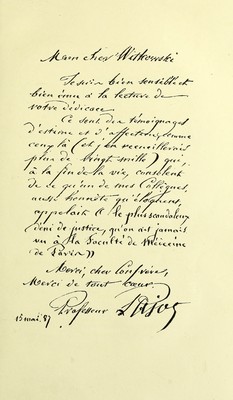 Mon cher Witkowski
Je suis bien sensible et
bien ému à la lecture de
votre dédicace
Ce sont des témoignages
d'estime et d'affection, comme
ceux là (et j'en recueillerais
plus de vingt mille) qui,
à la fin de la vie, consolent
de ce qu'un de mes Collègues,
aussi honnête qu'éloquent,
appelait « le plus scandaleux
déni de justice, qu'on ait jamais
vu à la Faculté de Médecine
de Paris »
Merci, cher Confrère,
Merci de tout cœur,
Professeur Pajot
15 mai. 87